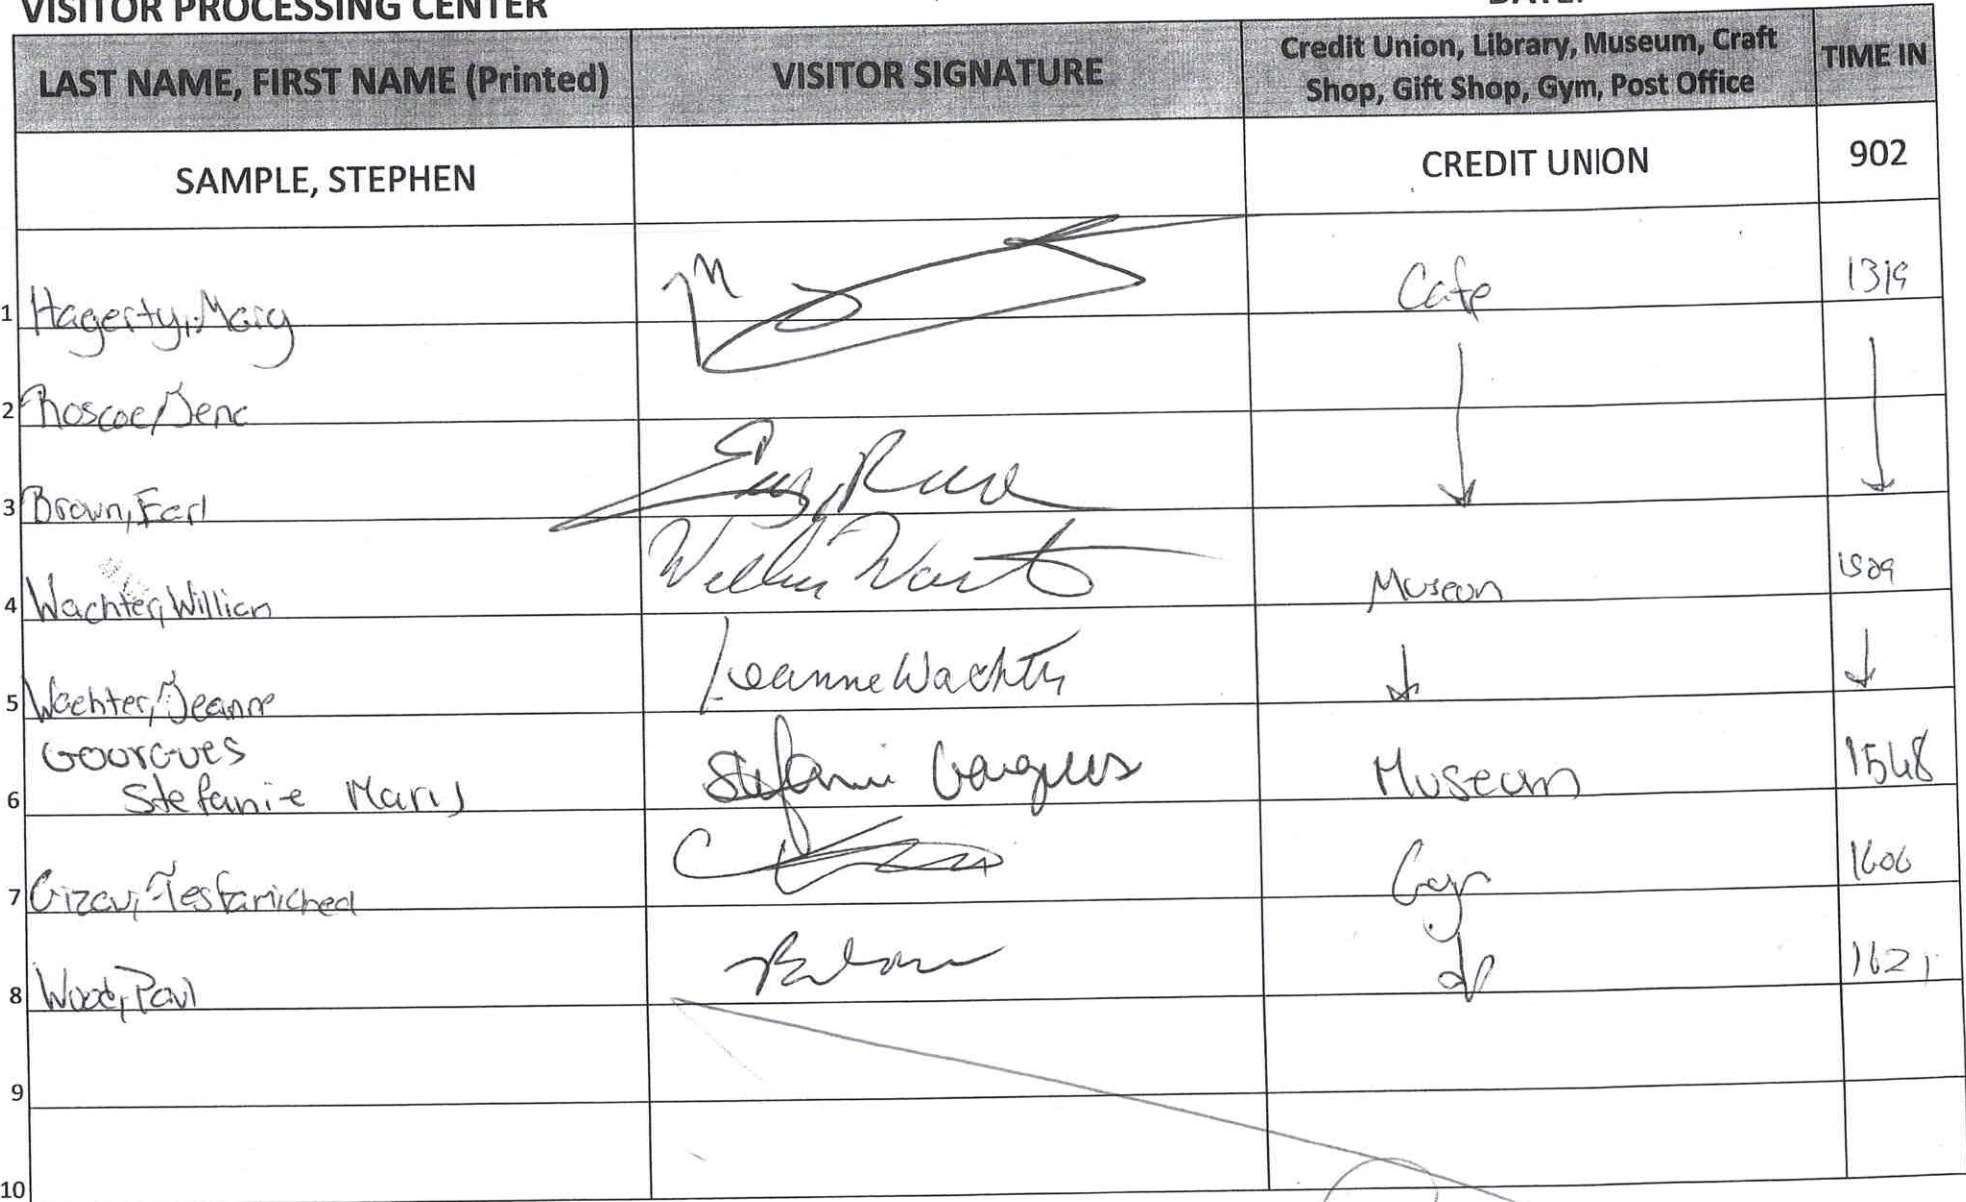 VISITOR PROCESSING CENTER
LAST NAME, FIRST NAME (Printed) VISITOR SIGNATURE Credit Union, Library, Museum, Craft Shop, Gift Shop, Gym, Post Office TIME IN
SAMPLE, STEPHEN CREDIT UNION 902
1 Hagerty, Mary Cafe 1319
2 Roscoe,
3 Brown, Earl
4 Wachter, William Museum
5 Wachter, Jeanne Jeanne Wachter
Gourgues
6 Stefanie Marie Stefanie Gourgues Museum 1548
7 1606
8 Wood, Paul 1621
9
10